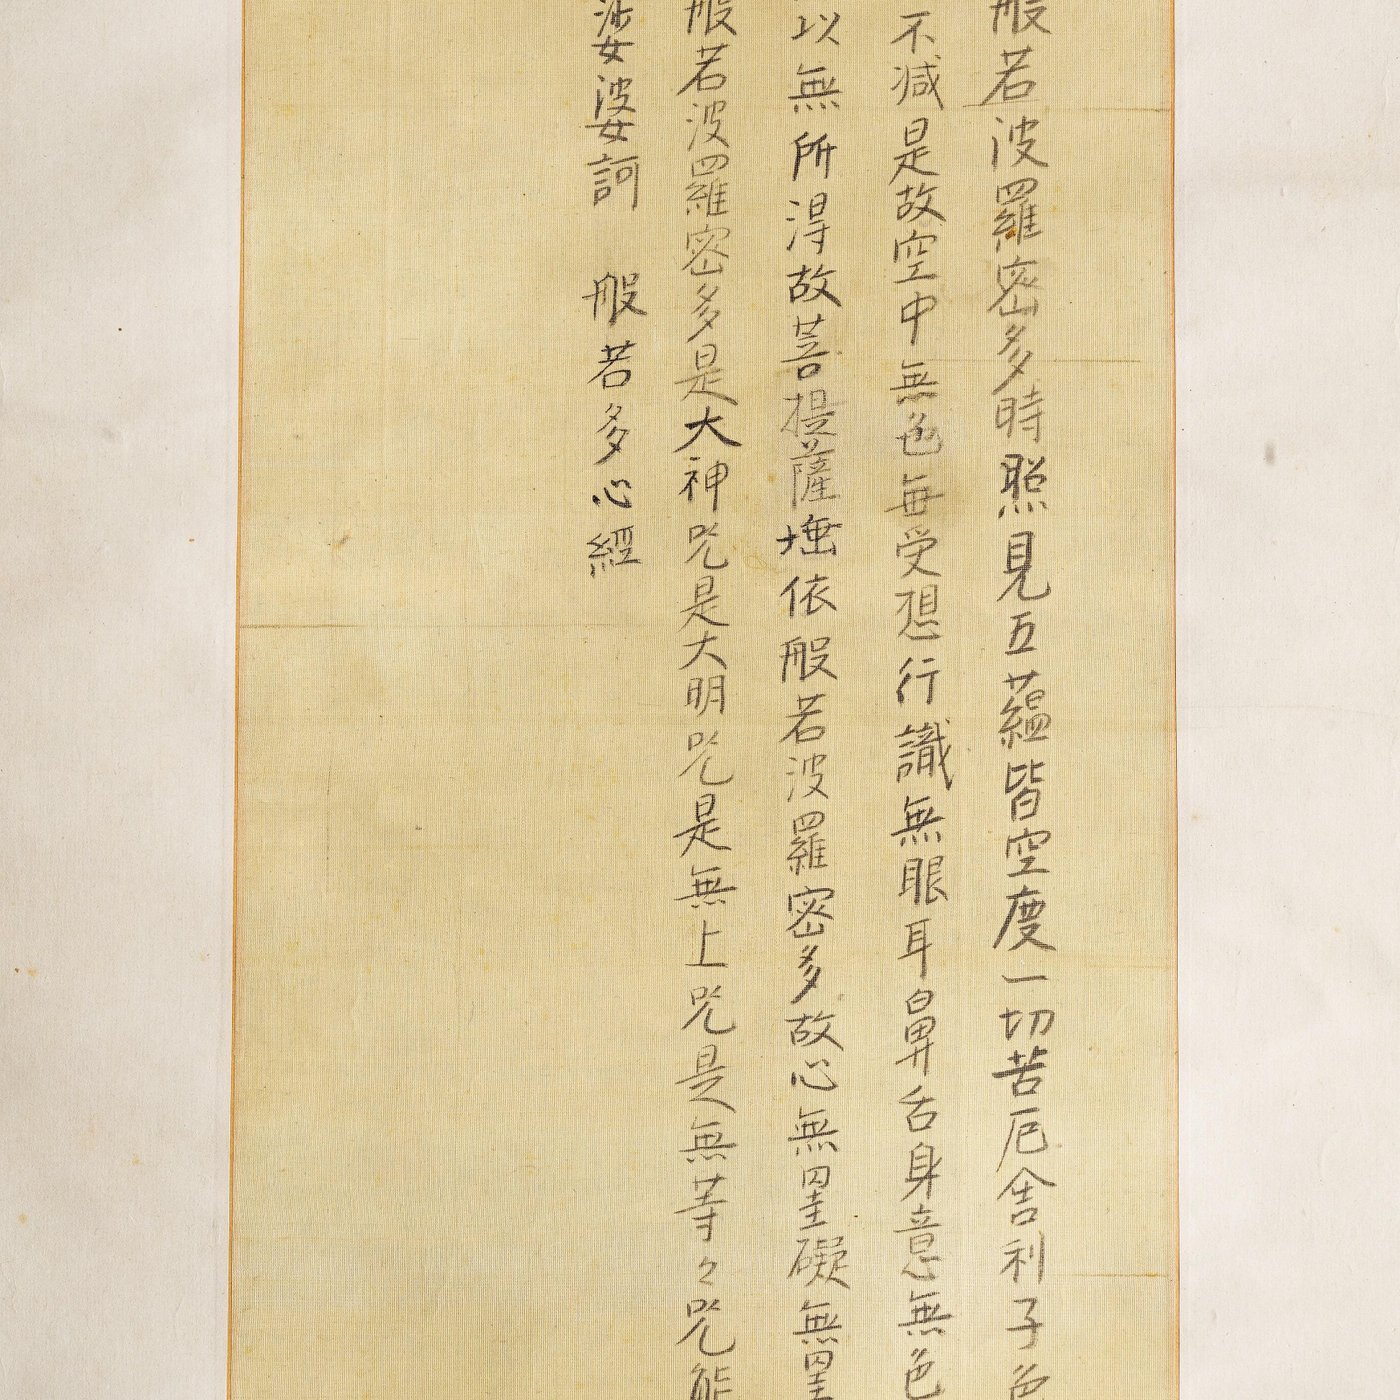 般若波羅密多時照見五蘊皆空度一切苦厄舍利子色
不減是故空中無色無受想行識無眼耳鼻舌身意無色
以無所得故菩提薩埵依般若波羅密多故心無罣礙無罣
般若波羅密多是大神咒是大明咒是無上咒是無等々咒能
婆婆訶 般若多心經